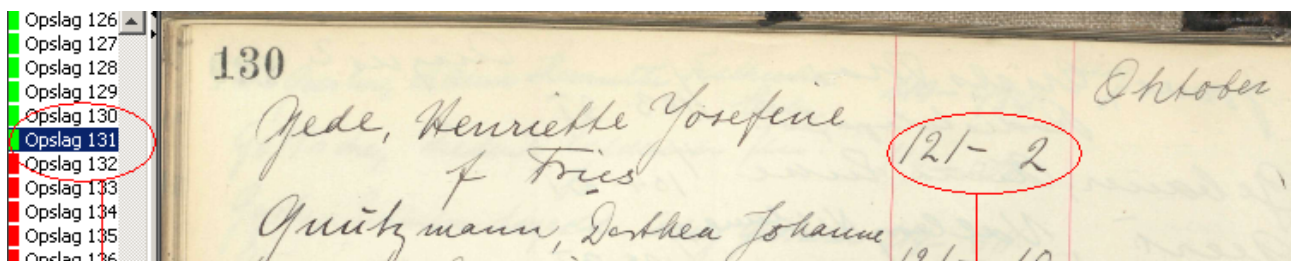 Opslag 126
Opslag 127
Opslag 128
Opslag 129
Opslag 130
Opslag 131
Opslag 132
Opslag 133
Opslag 134
Opslag 135
Opslag 136
130
Oktober
Gede, Henriette Josefine 121- 2
f Fries
Gnutzmann, Dorthea Johanne
121- 10